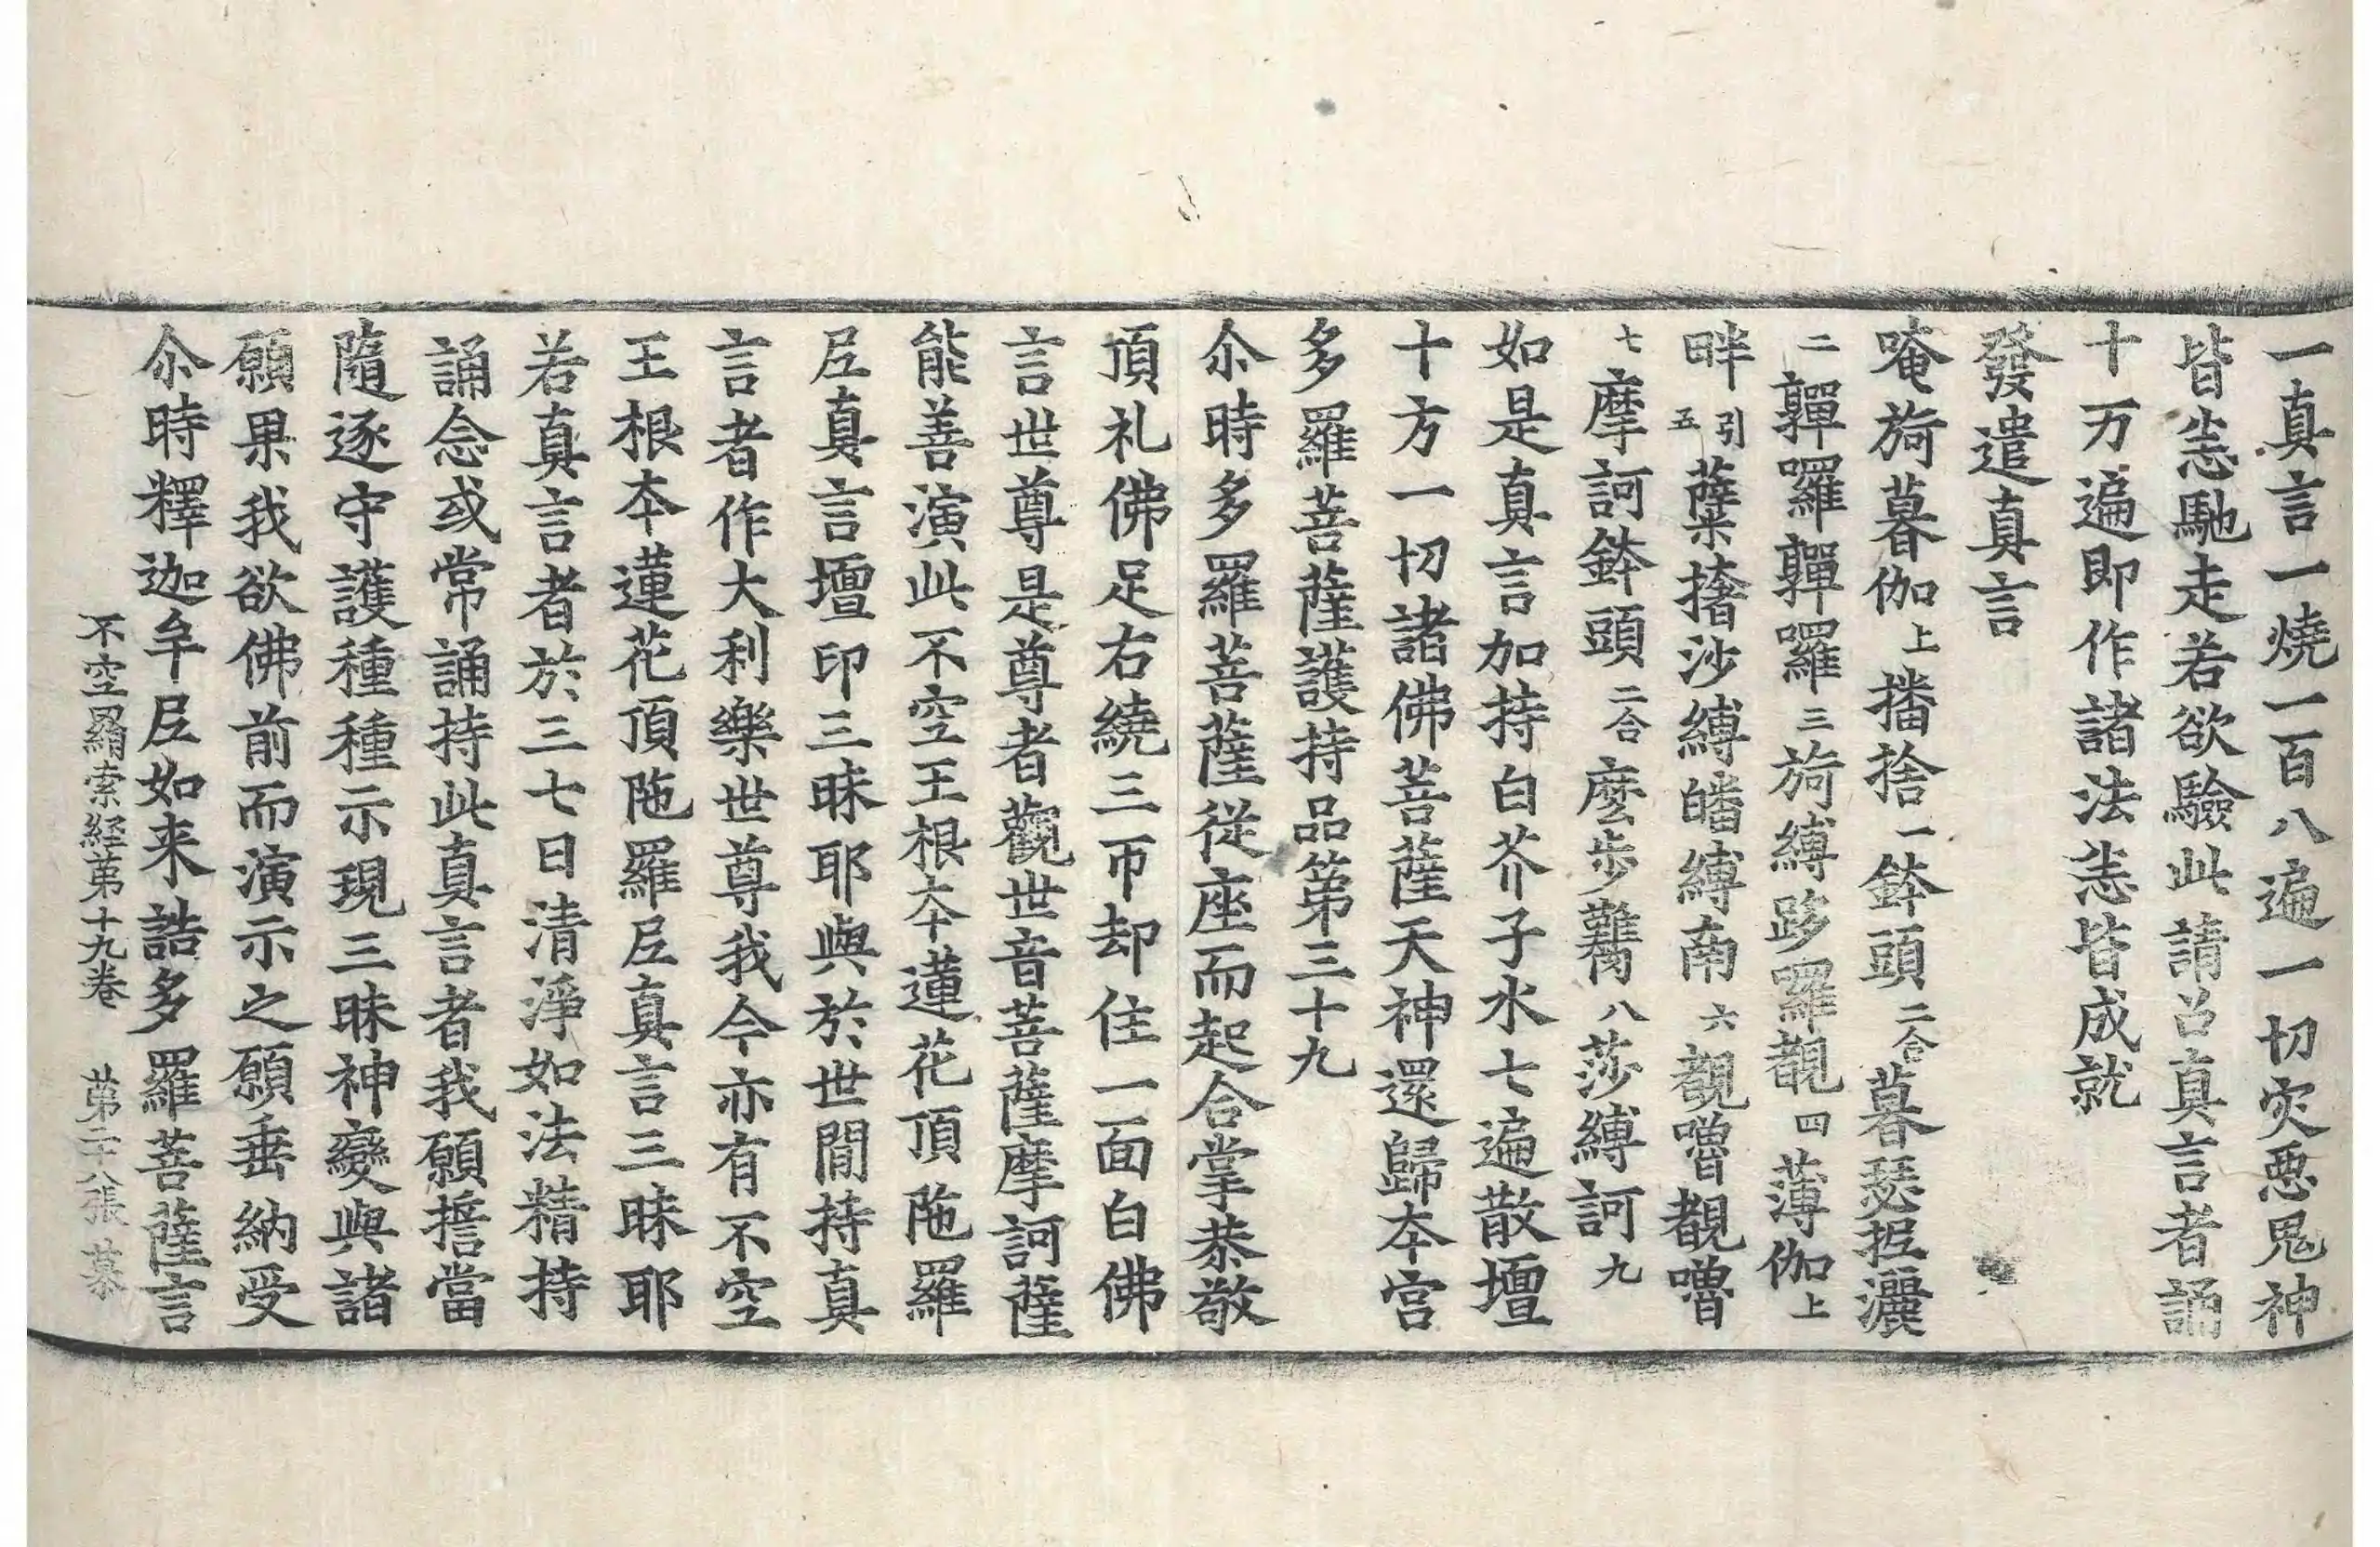 一真言一燒一百八遍一切灾惡鬼神
皆恙馳走若欲驗此請召真言者誦
十万遍即作諸法恙皆成就
發遣真言
唵旖暮伽上播捨一鉢頭二合暮瑟抳灑
二嚲囉嚲囉三旖縛跢羅覩四薄伽上
畔引五蘗撦沙縛皤縛南六覩嚕覩嚕
七摩訶鉢頭二合麼步臡八莎縛訶九
如是真言加持白芥子水七遍散壇
十方一切諸佛菩薩天神還歸本宮
多羅菩薩護持品第三十九
尒時多羅菩薩從座而起合掌恭敬
頂礼佛足右繞三帀却住一面白佛
言世尊是尊者觀世音菩薩摩訶薩
能善演此不空王根本蓮花頂陁羅
尼真言壇印三昧耶與於世間持真
言者作大利樂世尊我今亦有不空
王根本蓮花頂陁羅尼真言三昧耶
若真言者於三七日清淨如法精持
誦念或常誦持此真言者我願擔當
隨逐守護種種示現三昧神變與諸
願果我欲佛前而演示之願垂納受
尒時釋迦牟尼如来誥多羅菩薩言
不空羂索経苐十九卷 苐二十八張 慕